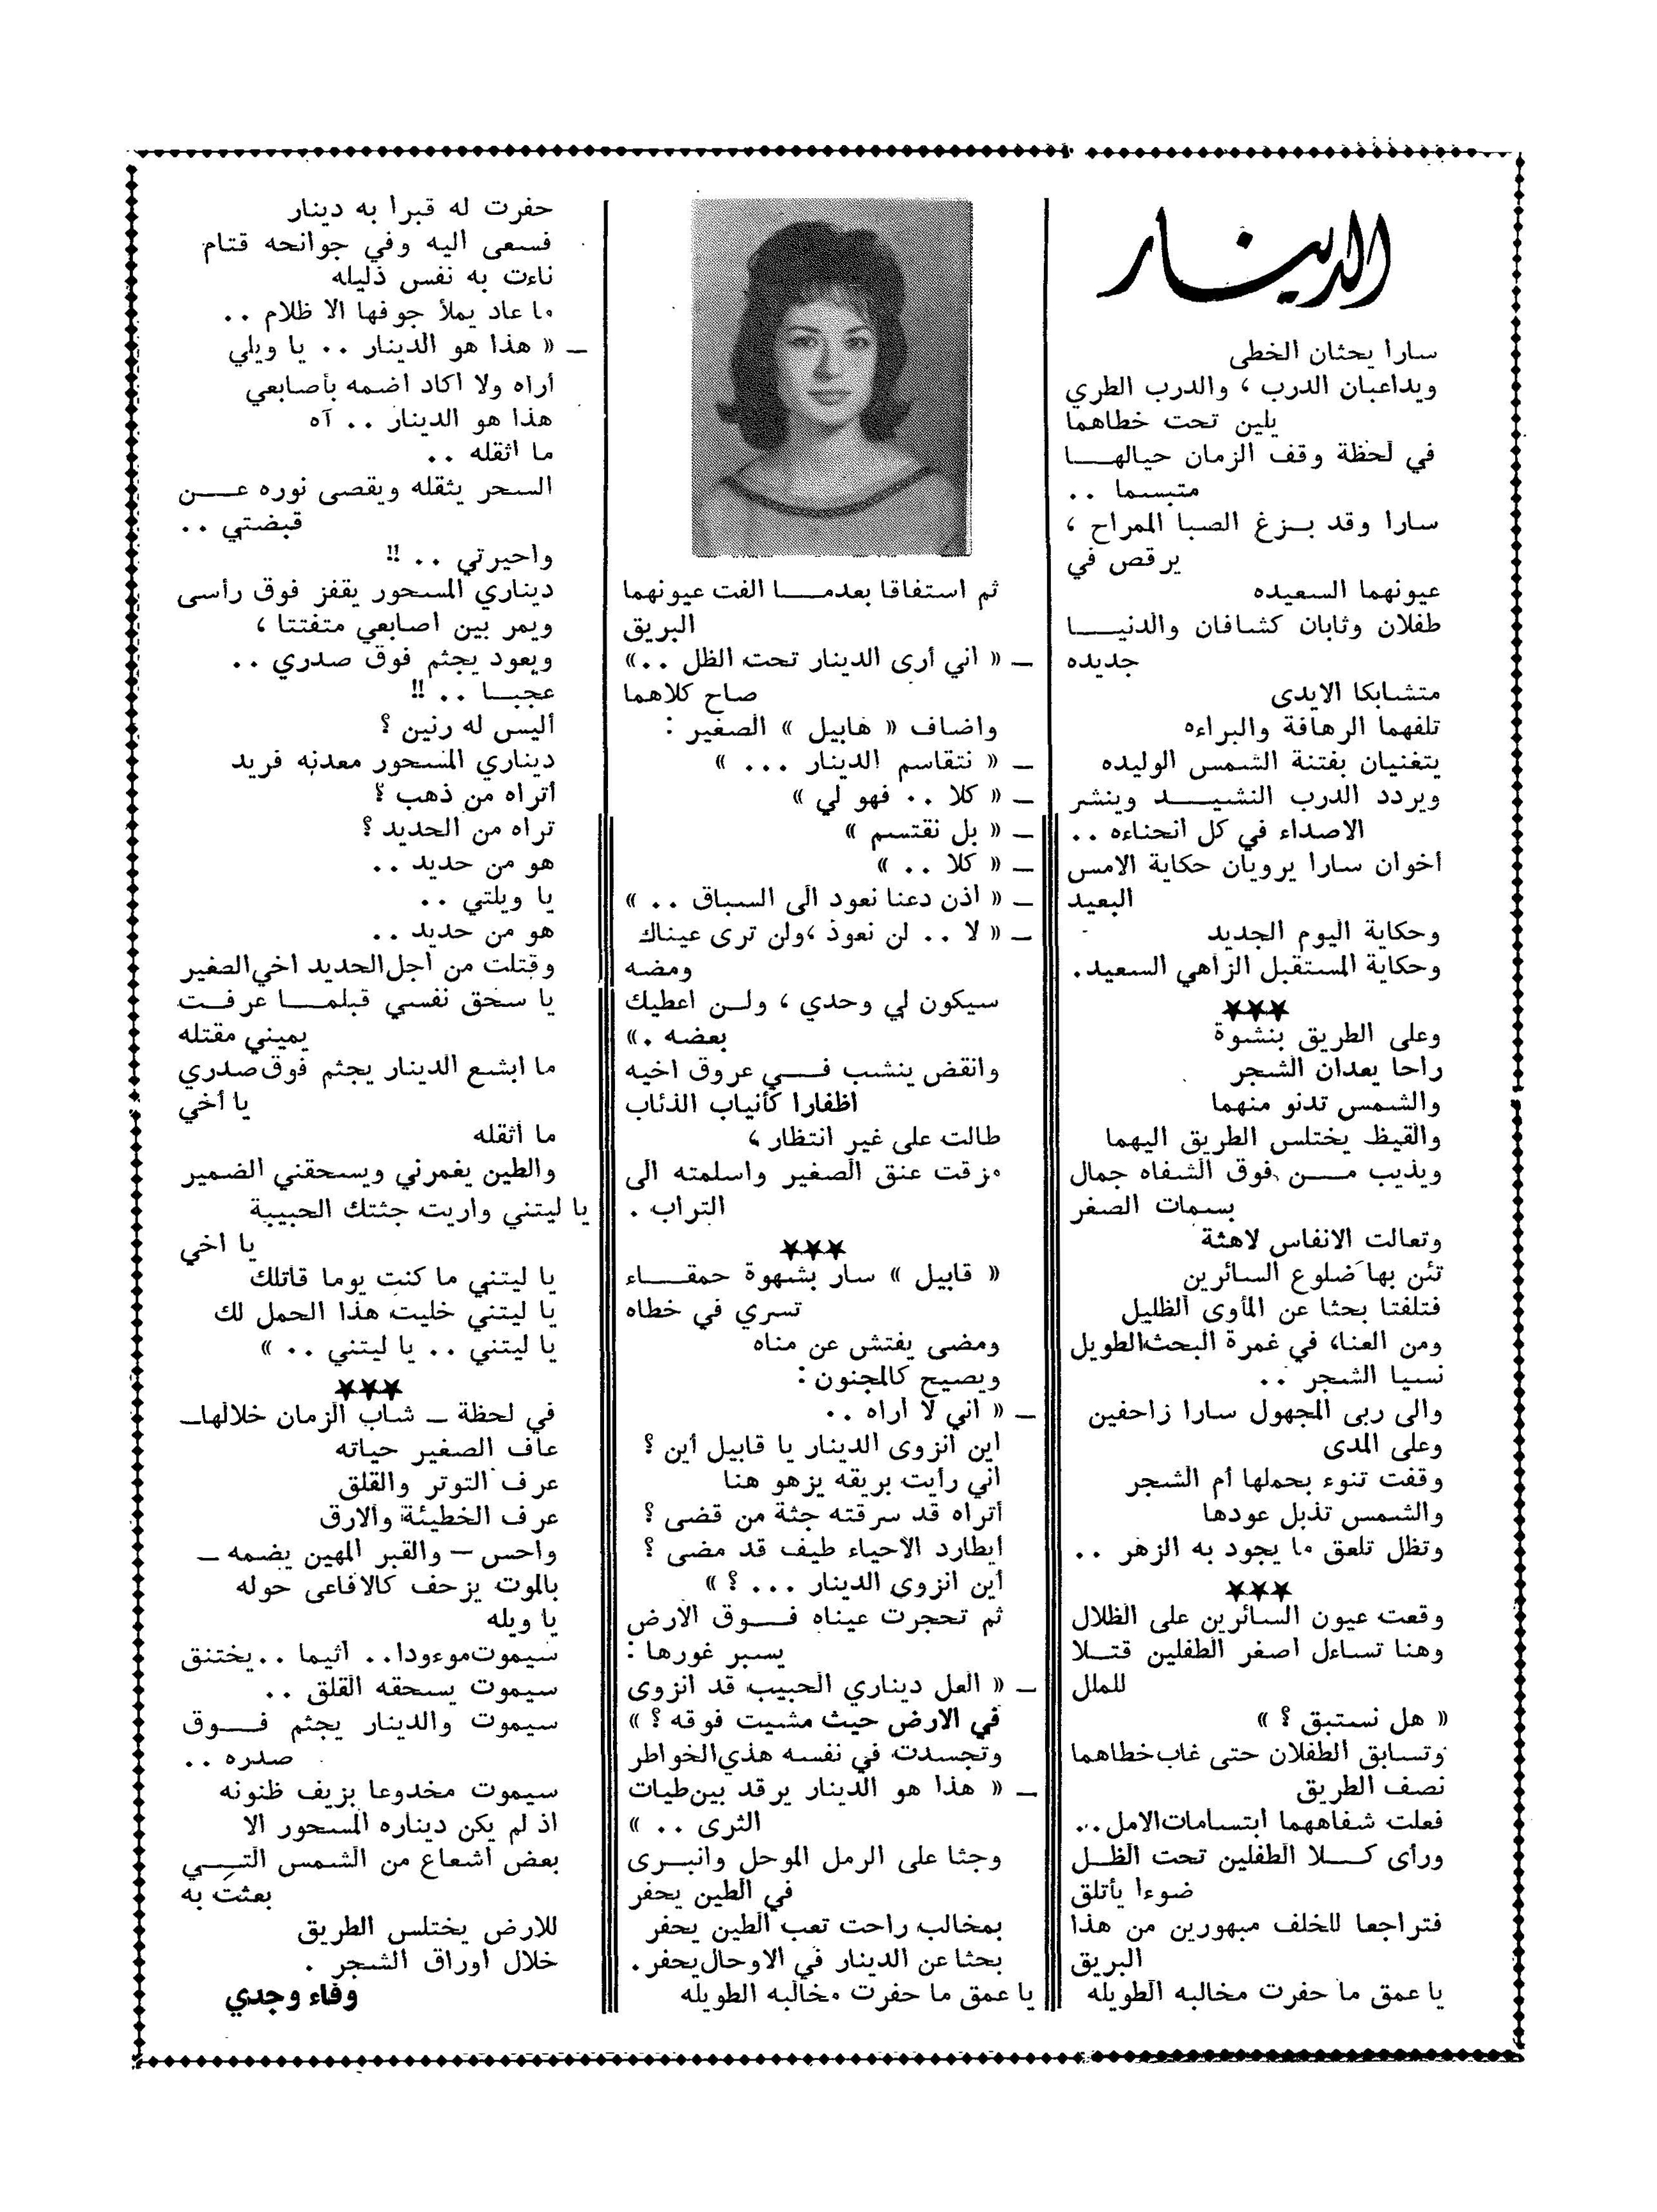 الدينار
سارا يحثان الخطى
ويداعبان الدرب ، والدرب الطري
يلين تحت خطاهما
في لحظة وقف الزمان حيالهـــا
متبسما ..
سارا وقد بــزغ الصبا الممراح ،
يرقص في
عيونهما السعيده
طفلان وثابان كشافان والدنيـــا
جديده
متشابكا الايدى
تلفهما الرهافة والبراءه
يتغنيان بفتنة الشمس الوليده
ويردد الدرب النشيـــد وينشر
الاصداء في كل انحناءه ..
أخوان سارا يرويان حكاية الامس
البعيد
وحكاية اليوم الجديد
وحكاية المستقبل الزاهي السعيد.
★★★
وعلى الطريق بنشوة
راحا يعدان الشجر
والشمس تدنو منهما
والقيظ يختلس الطريق اليهما
ويذيب مـــن فوق الشفاه جمال
بسمات الصغر
وتعالت الانفاس لاهثة
تئن بها ضلوع السائرين
فتلفتا بحثا عن المأوى الظليل
ومن العناء في غمرة البحث الطويل
نسيا الشجر ..
والى ربى المجهول سارا زاحفين
وعلى المدى
وقفت تنوء بحملها أم الشجر
والشمس تذبل عودها
وتظل تلعق ما يجود به الزهر ..
★★★
وقعت عيون السائرين على الظلال
وهنا تساءل اصغر الطفلين قتــلا
للملل
« هل نستبق ؟ »
وتسابق الطفلان حتى غاب خطاهما
نصف الطريق
فعلت شفاههما ابتسامات الامل ..
ورأى كـــلا الطفلين تحت الظــل
ضوءا يأتلق
فتراجعا للخلف مبهورين من هذا
البريق
يا عمق ما حفرت مخالبه الطويله
ثم استفاقا بعدمـــا الفت عيونهما
البريق
ـ « اني أرى الدينار تحت الظل .. »
صاح كلاهما
واضاف « هابيل » الصغير :
ـ « نتقاسم الدينار ... »
ـ « كلا .. فهو لي »
ـ « بل نقتسم »
ـ « كلا .. »
ـ « اذن دعنا نعود الى السباق .. »
ـ « لا .. لن نعود ، ولن ترى عيناك
ومضه
سيكون لي وحدي ، ولــن اعطيك
بعضه . »
وانقض ينشب فـــي عروق اخيه
اظفارا كأنياب الذئاب
طالت على غير انتظار ،
مزقت عنق الصغير واسلمته الى
التراب .
★★★
« قابيل » سار بشهوة حمقـــاء
تسري في خطاه
ومضى يفتش عن مناه
ويصيح كالمجنون :
ـ « اني لا اراه ..
اين انزوى الدينار يا قابيل أين ؟
اني رأيت بريقه يزهو هنا
أتراه قد سرقته جثة من قضى ؟
ايطارد الاحياء طيف قد مضى ؟
أين انزوى الدينار ... ؟ »
ثم تحجرت عيناه فـــوق الارض
يسبر غورها :
ـ « العل ديناري الحبيب قد انزوى
في الارض حيث مشيت فوقه ؟ »
وتجسدت في نفسه هذي الخواطر
ـ « هذا هو الدينار يرقد بين طيات
الثرى .. »
وجثا على الرمل الموحل وانبــرى
في الطين يحفر
بمخالب راحت تعب الطين يحفر
بحثا عن الدينار في الاوحال يحفر .
يا عمق ما حفرت مخالبه الطويله
حفرت له قبرا به دينار
فسعى اليه وفي جوانحه قتام
ناءت به نفس ذليله
ما عاد يملأ جوفها الا ظلام ..
ـ « هذا هو الدينار .. يا ويلي
أراه ولا اكاد اضمه بأصابعي
هذا هو الدينار .. آه
ما اثقله ..
السحر يثقله ويقصى نوره عـــن
قبضتي ..
واحيرتي .. !!
ديناري المسحور يقفز فوق رأسى
ويمر بين اصابعي متفتتا ،
ويعود يجثم فوق صدري ..
عجبــا .. !!
أليس له رنين ؟
ديناري المسحور معدنه فريد
أتراه من ذهب ؟
تراه من الحديد ؟
هو من حديد ..
يا ويلتي ..
هو من حديد ..
وقتلت من اجل الحديد اخي الصغير
يا سحق نفسي قبلمـــا عرفـت
يميني مقتله
ما ابشع الدينار يجثم فوق صدري
يا أخي
ما أثقله
والطين يغمرني ويسحقني الضمير
يا ليتني واريت جثتك الحبيبة
يا اخي
يا ليتني ما كنت يوما قاتلك
يا ليتني خليت هذا الحمل لك
يا ليتني .. يا ليتني .. »
★★★
في لحظة ـ شاب الزمان خلالها ـ
عاف الصغير حياته
عرف التوتر والقلق
عرف الخطيئة والارق
واحس ـ والقبر المهين يضمه ـ
بالموت يزحف كالافاعى حوله
يا ويله
سيموت موءودا .. اثيما .. يختنق
سيموت يسحقه القلق ..
سيموت والدينار يجثم فـــوق
صدره ..
سيموت مخدوعا بزيف ظنونه
اذ لم يكن ديناره المسحور الا
بعض اشعاع من الشمس التــي
بعثت به
للارض يختلس الطريق
خلال اوراق الشجر .
وفاء وجدي